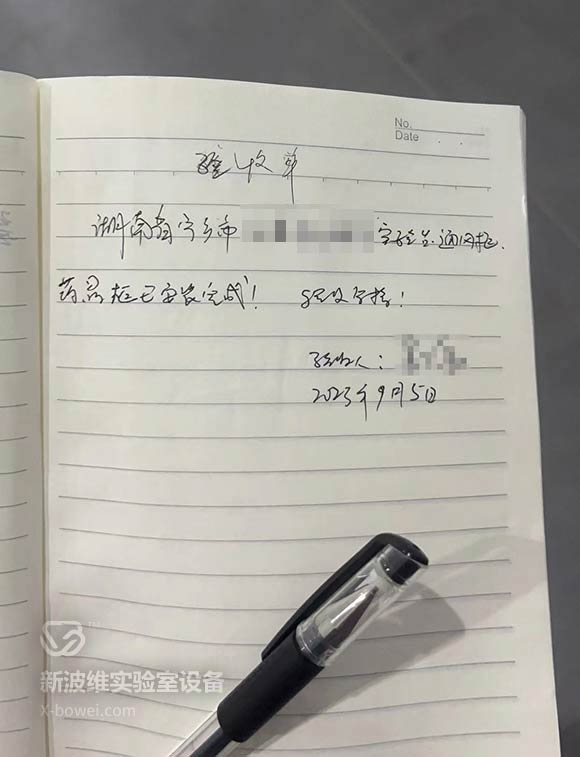 No.
Date
验收单
湖南省宁乡市 实验室通风柜、
药品柜已安装完成! 验收合格!
验收人:
2023年9月5日
TM
新波维实验室设备
X-bowei.com